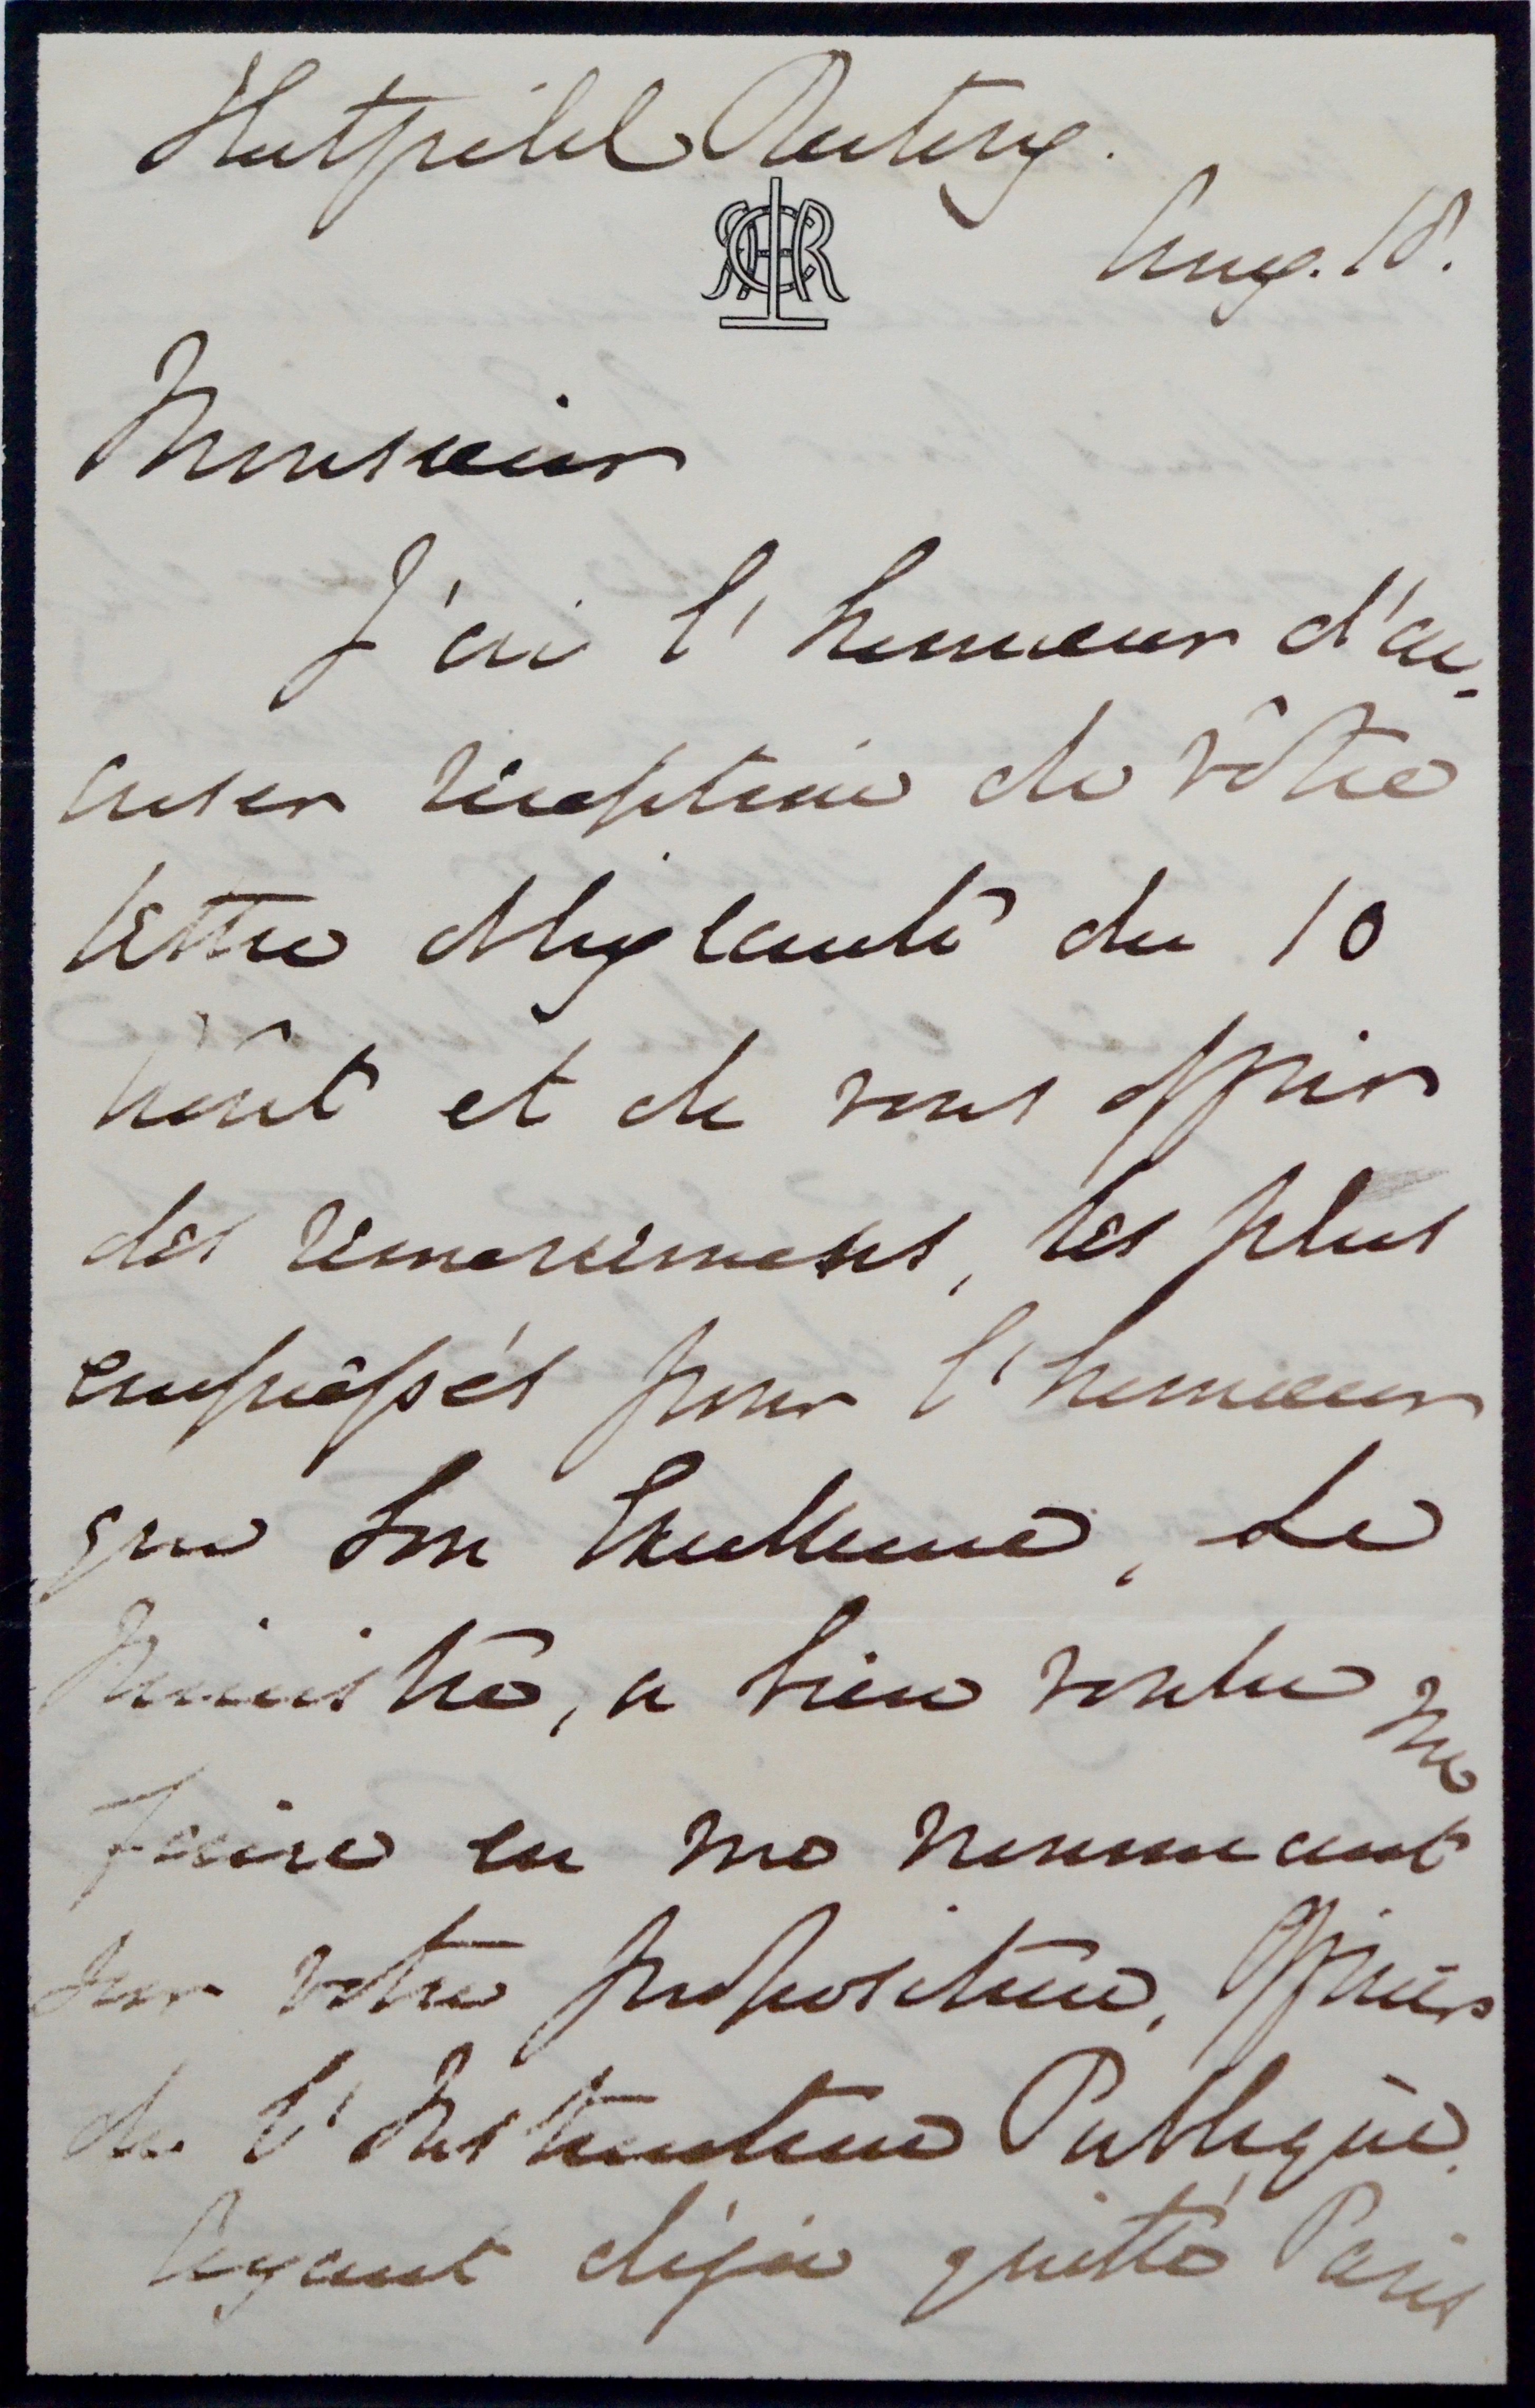 Hatfield Rectory.
Aug. 18.
Monsieur
J'ai l'honneur d'ac-
cuser reception de vôtre
lettre obligeante du 10
Aôut et de vous offrir
des remerciments, les plus
empressés pour l'honneur
que Son Excellence, Le
Ministre, a bien voulu me
faire en me nommant
sur votre proposition, Officier
de l'Instruction Publique.
Ayant déja quitté Paris